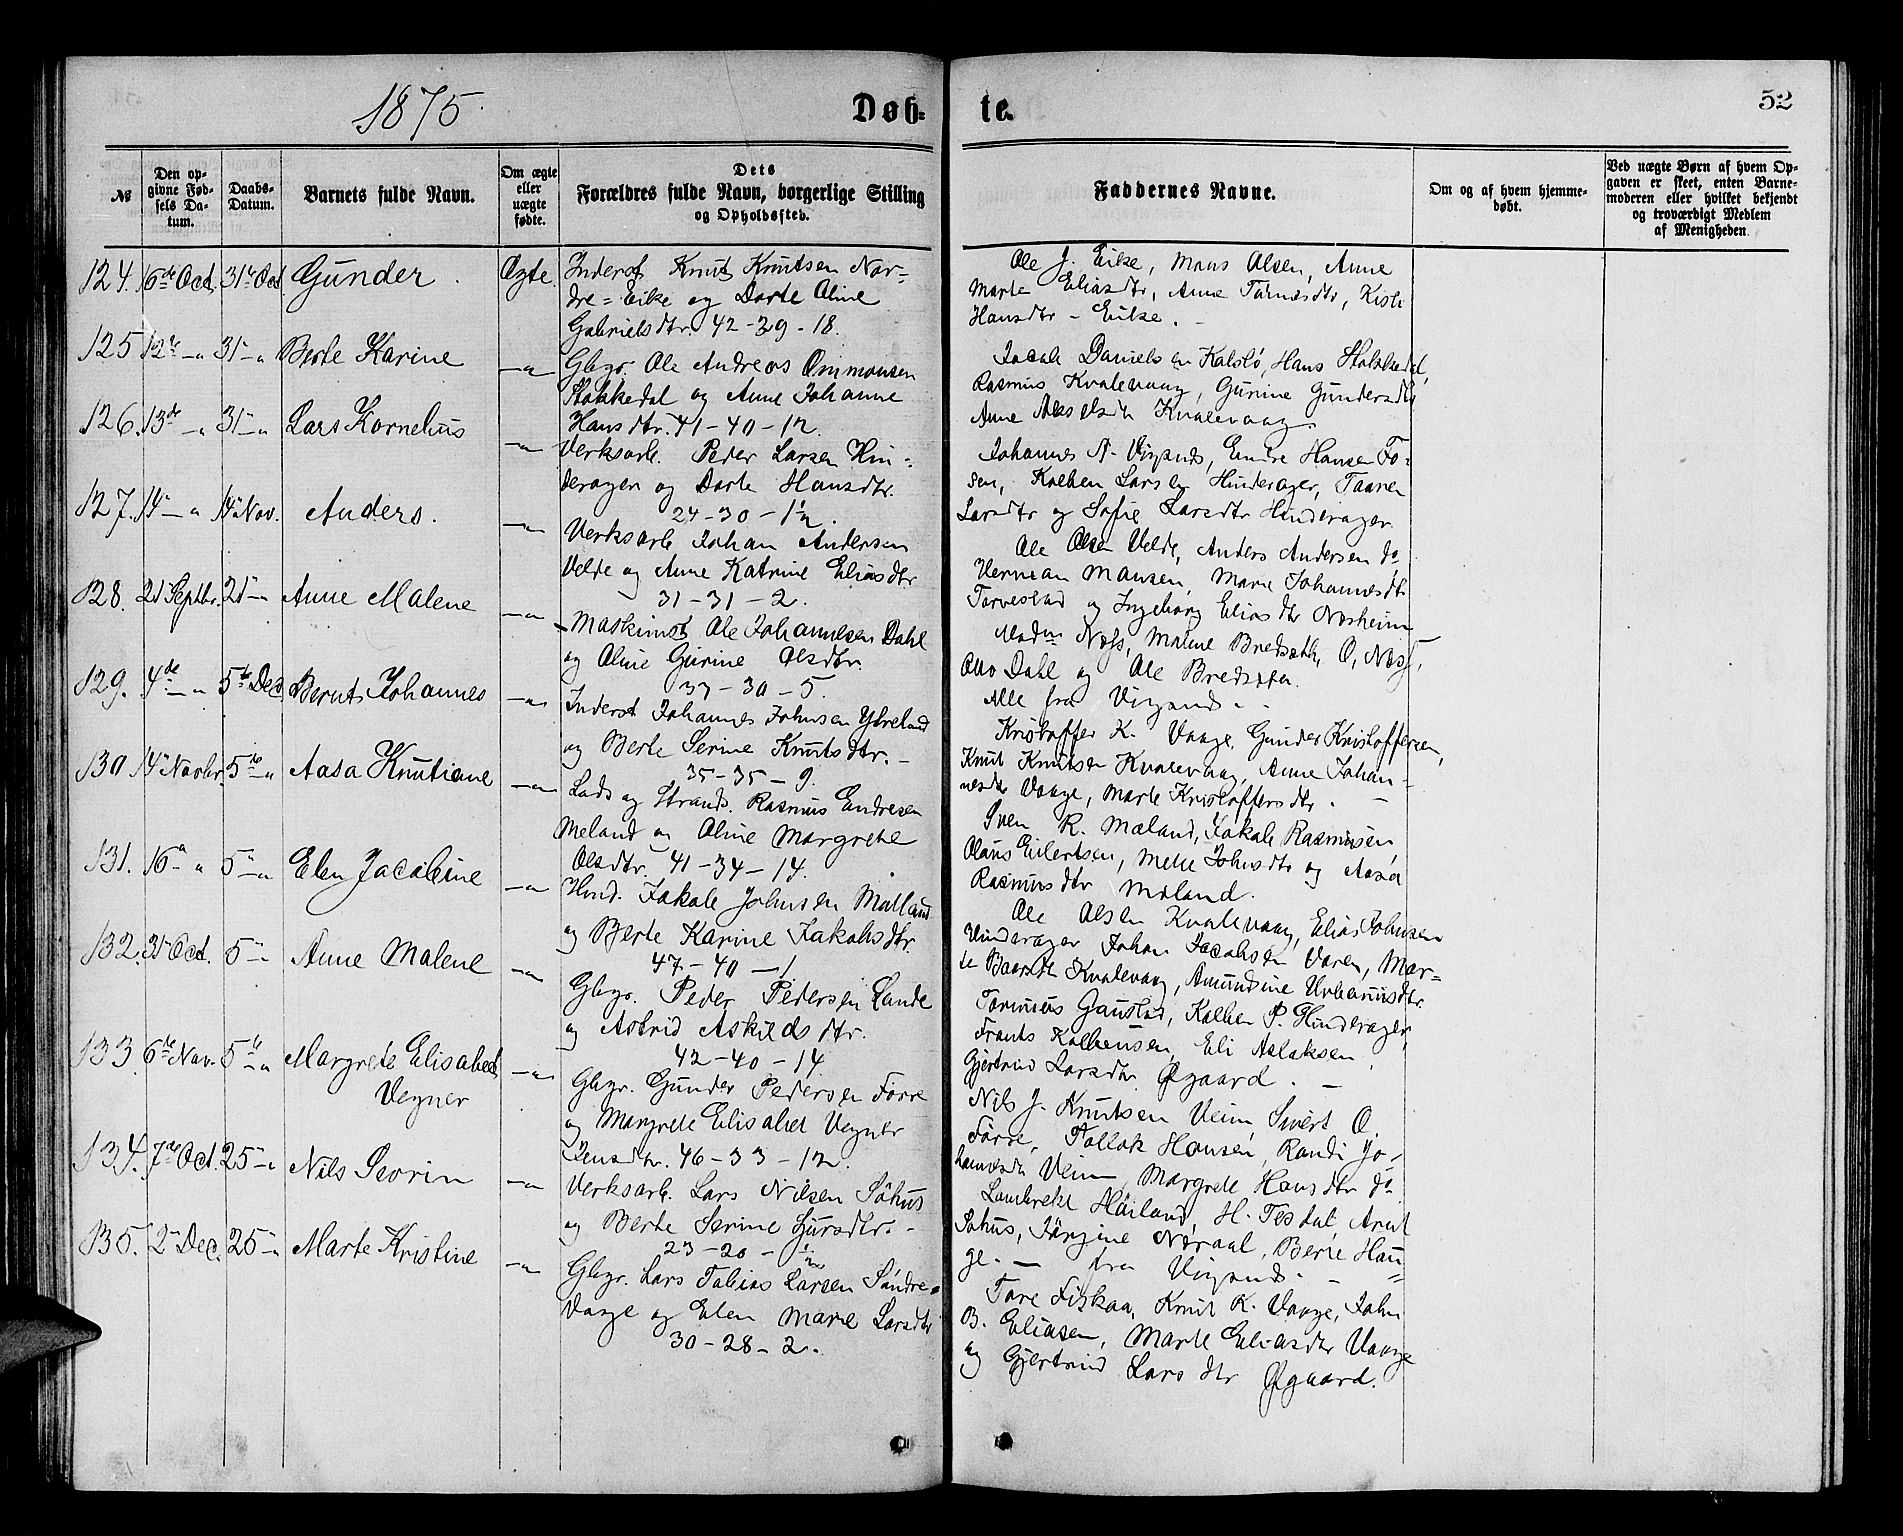 1875.
Døb-
te.
52
№
Den op-
givne Fød-
sels Da-
tum.
Daabs-
Datum.
Barnets fulde Navn.
Om ægte
eller
uægte
fødte.
Dets
Forældres fulde Navn, borgerlige Stilling
og Opholdssted.
Faddernes Navne.
Om og af hvem hjemme-
døbt.
Ved uægte Børn af hvem Op-
gaven er skeet, enten Barne-
moderen eller hvilket bekjendt
og troværdigt Medlem
af Menigheden.
124. 16de Oct. 31te Oct Gunder. Ægte.
Inderst Knut Knutsen Nor-
dre-Eike og Dorte Oline
Gabrielsdtr. 42-39-18.
Ole J. Eike, Mons Olsen, Anne
Marte Eliasdtr, Anne Tornesdtr,
Hansdtr - Eike.
125 12te -"- 31 -"- Berte Karine -"-
Gbgr. Ole Andreas Ommonsen
Stokkedal og Anne Johanne
Hansdtr. 41-40-12.
Jacob Danielsen Kalstø, Hans Stokkedal,
Rasmus Kvalevaag, Gurine Gundersdtr
Anne Akselsdtr Kvalevaag.
126. 13de -"- 31 -"- Lars Kornelius -"-
Verksarb. Peder Larsen Hin-
derager og Dorte Hansdtr.
24-30-1½.
Johannes A. Vigsnes, Endre Hansen Fo-
sen, Kolben Larsen Hinderager, Taaren
Larsdtr og Sofie Larsdtr Hinderager
127. 14 -"- 14 Nov. Anders. -"-
Verksarb Johan Andersen
Velde og Anne Katrine Eliasdtr
31-31-2.
Ole Olsen Velde, Anders Andersen do
Herman Monsen, Marie Johannesdtr
Torvestad og Ingeborg Eliasdtr Nesheim
128. 21 Septbr. 21 -"- Anne Malene -"-
Maskinist Ole Johannesen Dahl
og Oline Gurine Olsdtr.
37-30-5.
Madm Næss, Malene Bredsæth, O. Næss,
Otto Dahl og Ole Bredsæter.
Alle fra Vigsnes.
129. 4de -"- 5te Dec Bernt Johannes -"-
Inderst Johannes Johnsen Ytreland
og Berte Serine Knutsdtr.
35-35-9.
Kristoffer K. Vaage, Gunder Kristoffersen,
Knut Knutsen Kvalevaag, Anne Johan-
nesdtr Vaage, Marte Kristoffersdtr.
130. 14 Novbr. 5te -"- Aasa Knutiane -"-
Lods og Strands. Rasmus Endresen
Meland og Oline Margrethe
Olsdtr. 41-34-14.
Sven R. Meland, Jakob Rasmusen,
Olaus Eilertsen, Mette Johnsdtr og Aasa
Rasmusdtr Meland.
131. 16 -"- 5 -"- Elen Jacobine -"-
Hmd. Jakob Johnsen Matland
og Berte Karine Jakobsdtr.
47-40-1
Ole Olsen Kvalevaag, Elias Johnsen
Hinderager Johan Jacobsen Varen, Mar-
te Baarsdtr Kvalevaag, Amundine Urbanusdtr
132. 31 Oct. 5 -"- Anne Malene -"-
Gbgr. Peder Pedersen Lande
og Astrid Askildsdtr.
42-40-14
Tormius Gaustad, Kolben P. Hinderager,
Frants Kolbensen, Eli Aslaksen,
Gjertrud Larsdtr Øgaard.
133. 6te Nov. 5te -"- Margrete Elisabet -"-
Vegner
Gbgr. Gunder Pedersen Førre
og Margrete Elisabet Vegner
Jensdtr. 46-33-12.
Nils J. Knutsen Veim, Sivert O.
Førre, Tollak Hansen, Randi Jo-
hannesdtr Veim, Margrete Hansdtr do
134. 7de Oct. 25 -"- Nils Severin -"-
Verksarb. Lars Nilsen Søhus
og Berte Serine Sjursdtr.
23-20-½
Lambrekt Høiland, H. Tesdal, Arent
Søhus, Jørgine Neraal, Berte Hau-
ge. - fra Vigsnes.
135. 2 Dec. 25 -"- Marte Kristine -"-
Gbgr. Lars Tobias Larsen Søndre-
Vaage og Elen Marie Larsdtr
30-28-2.
Tore Fiskaa, Knut K. Vaage, John
B. Eliasen, Marte Eliasdtr Vaage
og Gjertrud Larsdtr Øgaard.